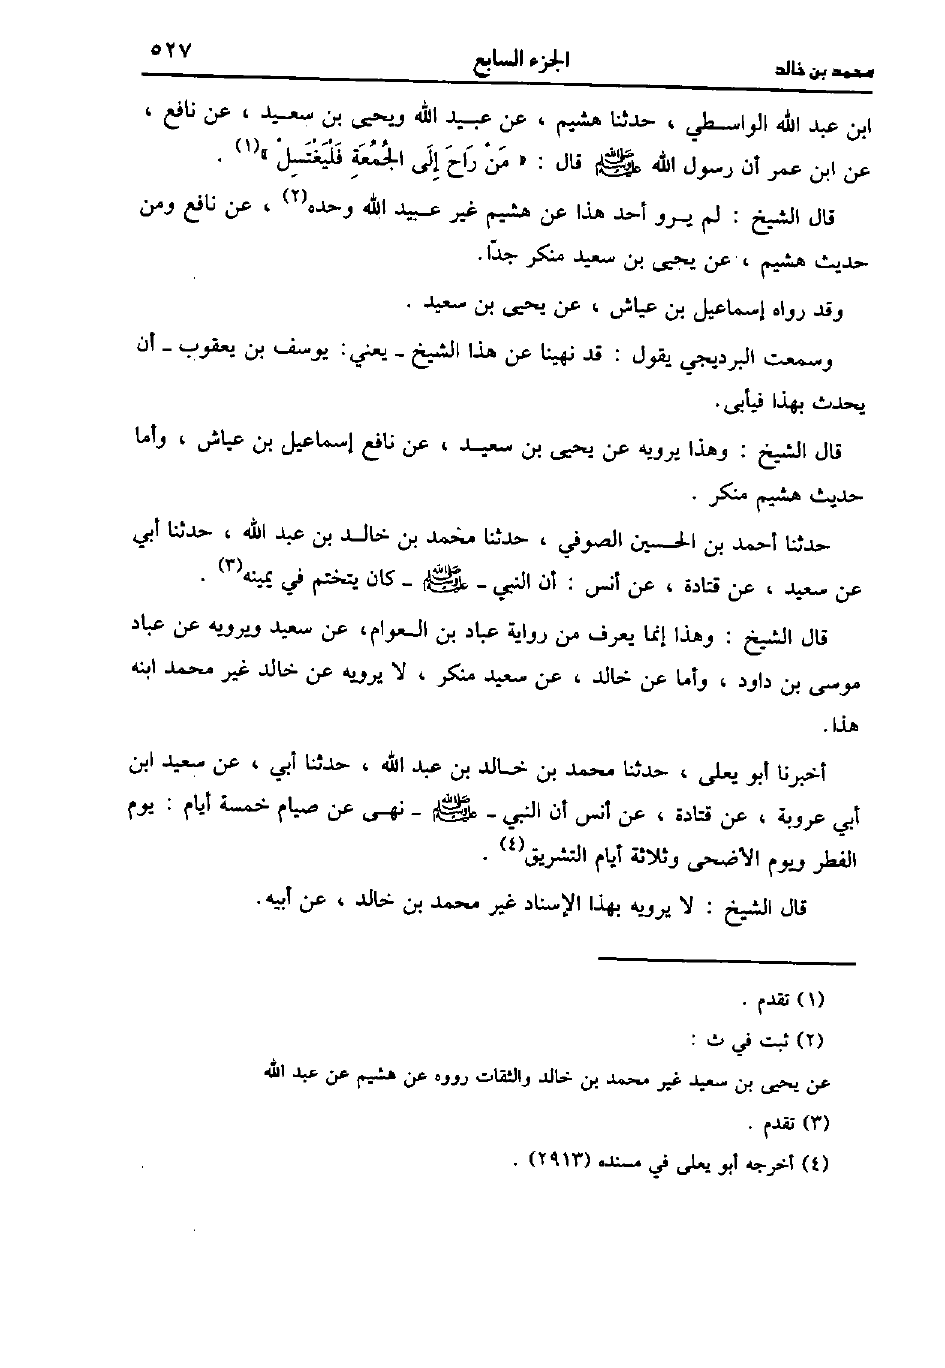 محمد بن خالد الجزء السابع ٥٢٧
ابن عبد الله الواسطي ، حدثنا هشيم ، عن عبيد الله ويحيى بن سعيد ، عن نافع ،
عن ابن عمر أن رسول الله ﷺ قال : « مَنْ رَاحَ إِلَى الْجُمُعَةِ فَلْيَغْتَسِلْ »(١) .
قال الشيخ : لم يرو أحد هذا عن هشيم غير عبيد الله وحده(٢) ، عن نافع ومن
حديث هشيم ، عن يحيى بن سعيد منكر جدّا.
وقد رواه إسماعيل بن عياش ، عن يحيى بن سعيد .
وسمعت البرديجي يقول : قد نهينا عن هذا الشيخ ـ يعني: يوسف بن يعقوب ـ أن
يحدث بهذا فيأبى.
قال الشيخ : وهذا يرويه عن يحيى بن سعيد ، عن نافع إسماعيل بن عياش ، وأما
حديث هشيم منكر .
حدثنا أحمد بن الحسين الصوفي ، حدثنا محمد بن خالد بن عبد الله ، حدثنا أبي
عن سعيد ، عن قتادة ، عن أنس : أن النبي ـ ﷺ ـ كان يتختم في يمينه(٣) .
قال الشيخ : وهذا إنما يعرف من رواية عباد بن العوام، عن سعيد ويرويه عن عباد
موسى بن داود ، وأما عن خالد ، عن سعيد منكر ، لا يرويه عن خالد غير محمد ابنه
هذا.
أخبرنا أبو يعلى ، حدثنا محمد بن خالد بن عبد الله ، حدثنا أبي ، عن سعيد ابن
أبي عروبة ، عن قتادة ، عن أنس أن النبي ـ ﷺ ـ نهى عن صيام خمسة أيام : يوم
الفطر ويوم الأضحى وثلاثة أيام التشريق(٤) .
قال الشيخ : لا يرويه بهذا الإسناد غير محمد بن خالد ، عن أبيه.
(١) تقدم .
(٢) ثبت في ث :
عن يحيى بن سعيد غير محمد بن خالد والثقات رووه عن هشيم عن عبد الله
(٣) تقدم .
(٤) أخرجه أبو يعلى في مسنده (٢٩١٣) .